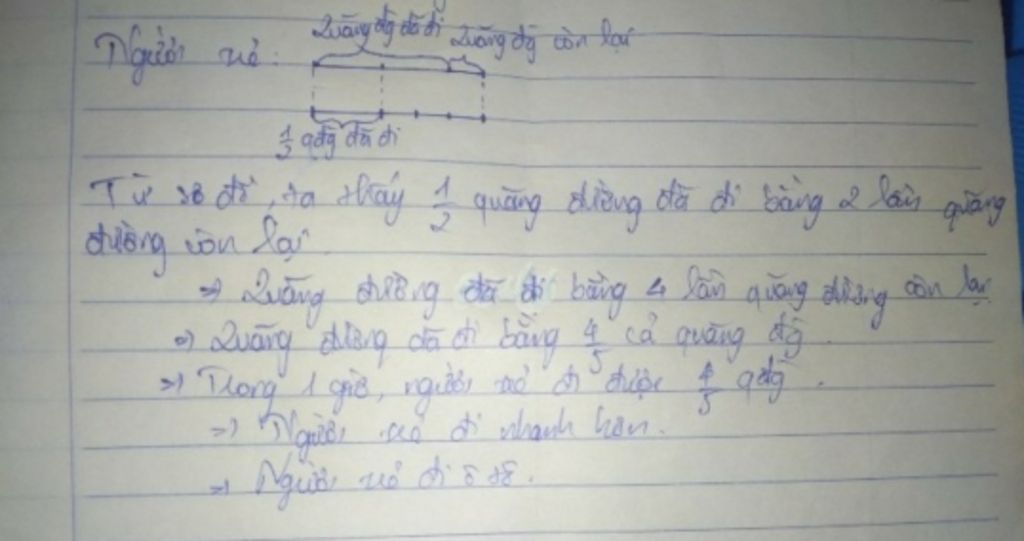 Quãng đg đã đi Quãng đg còn lại
Người nỏ:
1/2 qđg đã đi
Từ sơ đồ, ta thấy 1/2 quãng đường đã đi bằng 2 lần quãng
đường còn lại.
⇒ Quãng đường đã đi bằng 4 lần quãng đường còn lại
⇒ Quãng đường đã đi bằng 4/5 cả quãng đg.
⇒ Trong 1 giờ, người đi được 4/5 qđg.
⇒ Người đi nhanh hơn.
⇒ Người đi